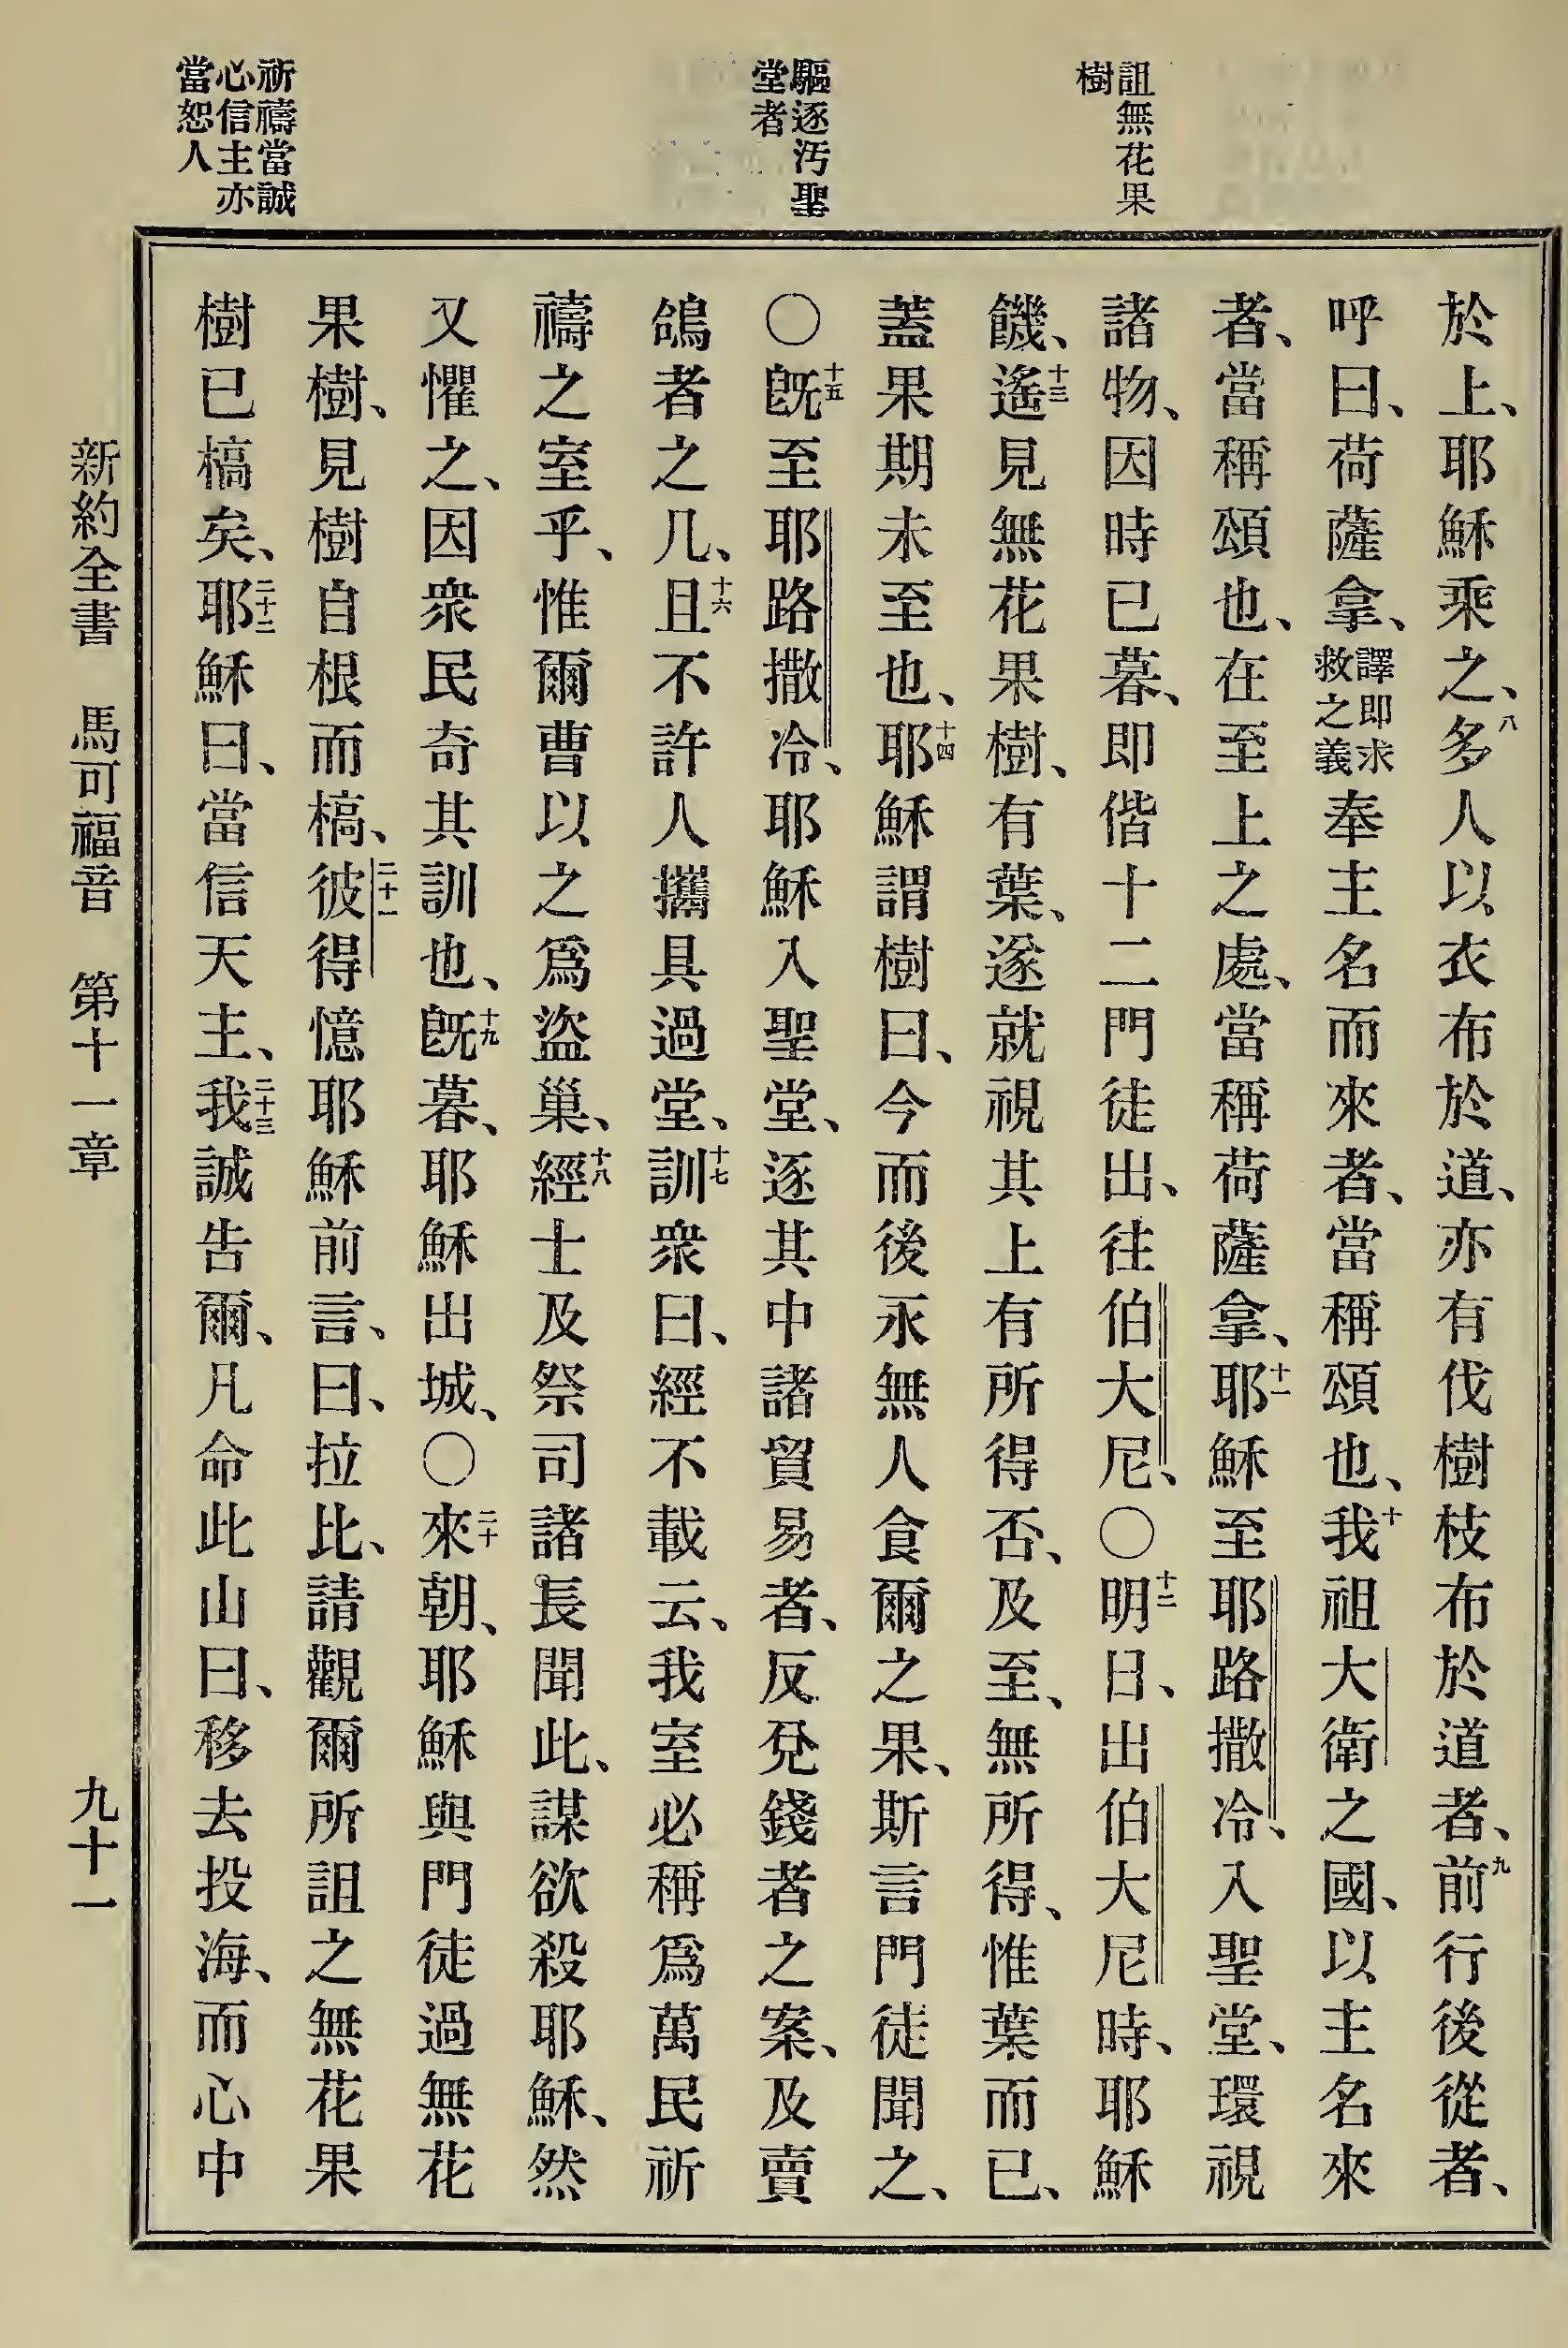 詛無花果
樹
驅逐汚聖
堂者
祈禱當誠
心信主亦
當恕人
於上、耶穌乘之、八多人以衣布於道、亦有伐樹枝布於道者、九前行後從者、
呼曰、荷薩拿、譯即求救之義奉主名而來者、當稱頌也、十我祖大衛之國、以主名來
者、當稱頌也、在至上之處、當稱荷薩拿、十一耶穌至耶路撒冷、入聖堂、環視
諸物、因時已暮、即偕十二門徒出、往伯大尼、○十二明日、出伯大尼時、耶穌
饑、十三遙見無花果樹、有葉、遂就視其上有所得否、及至、無所得、惟葉而已、
蓋果期未至也、十四耶穌謂樹曰、今而後永無人食爾之果、斯言門徒聞之、
○十五旣至耶路撒冷、耶穌入聖堂、逐其中諸貿易者、反兌錢者之案、及賣
鴿者之几、十六且不許人攜具過堂、十七訓衆曰、經不載云、我室必稱爲萬民祈
禱之室乎、惟爾曹以之爲盜巢、十八經士及祭司諸長聞此、謀欲殺耶穌、然
又懼之、因衆民奇其訓也、十九旣暮、耶穌出城、○二十來朝、耶穌與門徒過無花
果樹、見樹自根而槁、二十一彼得憶耶穌前言、曰、拉比、請觀爾所詛之無花果
樹已槁矣、二十二耶穌曰、當信天主、二十三我誠告爾、凡命此山曰、移去投海、而心中
新約全書 馬可福音 第十一章 九十一